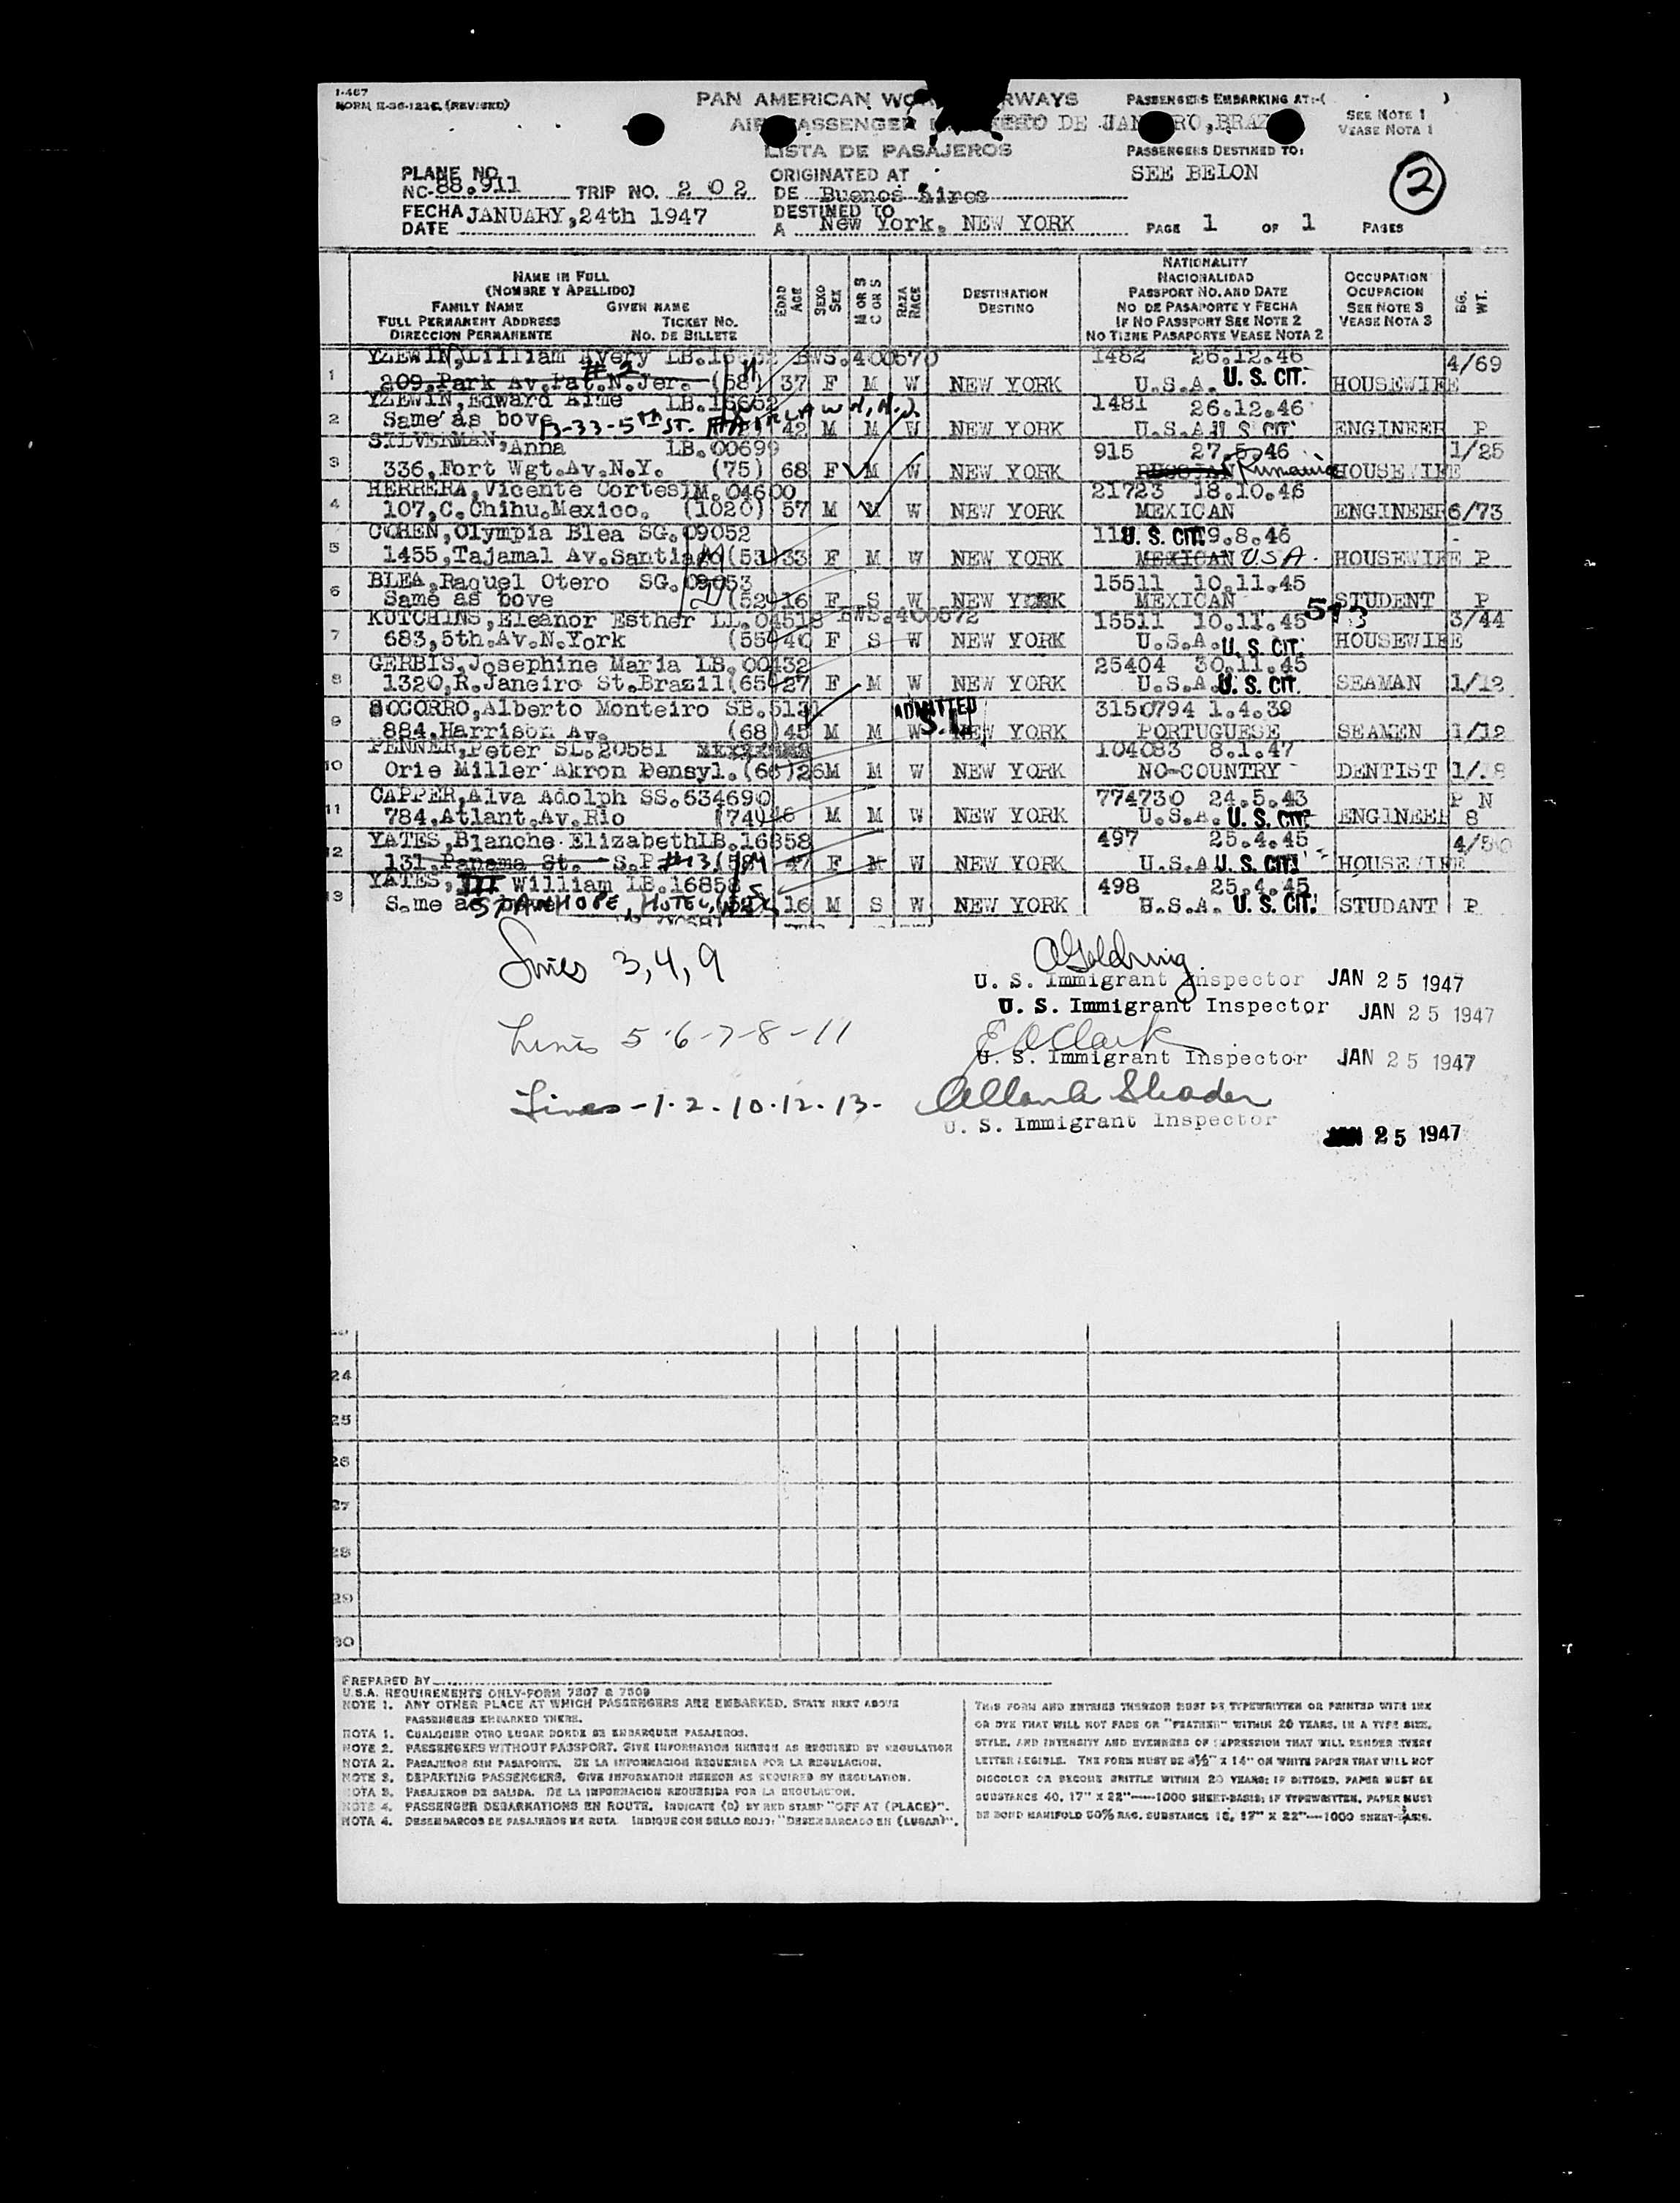 I-467
PAN AMERICAN WORWAYS
PASSENGERS EMBARKING AT:-( )
AIR PASSENGER DE JANRO, BRAZ
SEE NOTE 1
VEASE NOTA 1
LISTA DE PASAJEROS
PASSENGERS DESTINED TO:
SEE BELON
2
PLANE NO.
NC-88.911 TRIP NO. 2 0 2
ORIGINATED AT
DE Buenos Aires
FECHA
DATE JANUARY,24th 1947
DESTINED TO
A New York, NEW YORK
PAGE 1 OF 1 PAGES
NAME IN FULL
(NOMBRE Y APELLIDO)
FAMILY NAME GIVEN NAME
FULL PERMANENT ADDRESS TICKET NO.
DIRECCION PERMANENTE NO. DE BILLETE
EDAD AGE
SEXO SEX
M OR S C OR S
RAZA RACE
DESTINATION
DESTINO
NATIONALITY
NACIONALIDAD
PASSPORT NO. AND DATE
NO DE PASAPORTE Y FECHA
IF NO PASSPORT SEE NOTE 2
NO TIENE PASAPORTE VEASE NOTA 2
OCCUPATION
OCUPACION
SEE NOTE 3
VEASE NOTA 3
BG. WT.
YZEWIN, Lilliam Avery LB. BWS.400570 1482 26.12.46 4/69
1 #2 209.Park Av.Pat.N.Jer. (58) 37 F M W NEW YORK U.S.A. U. S. CIT. HOUSEWIFE
YZEWIN, Edward Aime LB.15652 1481 26.12.46
2 Same as bove B-33-5th ST. FAIRLAWN, N.J. 42 M M W NEW YORK U.S.A. U. S. CIT. ENGINEER P
SILVERMAN, Anna LB.00699 915 27.5.46 1/25
3 336, Fort Wgt.Av.N.Y. (75) 68 F M W NEW YORK RUSSIAN Rumania HOUSEWIFE
HERRERA, Vicente Cortes IM. 04600 21723 18.10.46
4 107, C. Chihu.Mexico. (1020) 57 M M W NEW YORK MEXICAN ENGINEER 6/73
COHEN, Olympia Blea SG. 09052 U. S. CIT. 9.8.46 -
5 1455, Tajamal Av.Santiago (53) 33 F M W NEW YORK MEXICAN USA. HOUSEWIFE P
BLEA, Raquel Otero SG. 09053 15511 10.11.45
6 Same as bove (52) 16 F S W NEW YORK MEXICAN STUDENT P
KUTCHINS, Eleanor Esther LL. 04518 BWS.400572 15511 10.11.45 513 3/44
7 683, 5th.Av.N.York (55) 40 F S W NEW YORK U.S.A. U. S. CIT. HOUSEWIFE
GERBIS, Josephine Maria LB. 00432 25404 30.11.45
8 1320, R.Janeiro St.Brazil (65) 27 F M W NEW YORK U.S.A. U. S. CIT. SEAMAN 1/12
SOCORRO, Alberto Monteiro SB.5131 ADMITTED S.L. 3150794 1.4.39
9 884.Harrison Av. (68) 45 M M W NEW YORK PORTUGUESE SEAMEN 1/12
PENNER, Peter SL.20581 104083 8.1.47
10 Orie Miller Akron Pensyl. (66) 26 M M W NEW YORK NO-COUNTRY DENTIST
CAPPER, Alva Adolph SS.634690 774730 24.5.43 P N
11 784.Atlant.Av.Rio (74) M M W NEW YORK U.S.A. U. S. CIT. ENGINEER 8
YATES, Blanche Elizabeth LB.16858 497 25.4.45
12 131 Panama St. S.P. #13 47 F M W NEW YORK U.S.A U. S. CIT. HOUSEWIFE
YATES, III William LB.1685 498 25.4.45
13 Same as STANHOPE HOTEL, 16 M S W NEW YORK U.S.A. U. S. CIT. STUDANT P
Lines 3, 4, 9
AGoldring
U. S. Immigrant Inspector JAN 25 1947
U. S. Immigrant Inspector JAN 25 1947
Lines 5-6-7-8-11
E A Clark
U. S. Immigrant Inspector JAN 25 1947
Lines-1.2.10.12.13.
U. S. Immigrant Inspector
JAN 25 1947
24
25
26
27
28
29
30
PREPARED BY
U.S.A. REQUIREMENTS ONLY-FORM 7507 & 7509
NOTE 1. ANY OTHER PLACE AT WHICH PASSENGERS ARE EMBARKED, STATE NEXT ABOVE
PASSENGERS EMBARKED THERE.
NOTA 1. CUALQUIER OTRO LUGAR DONDE SE EMBARQUEN PASAJEROS.
NOTE 2. PASSENGERS WITHOUT PASSPORT, GIVE INFORMATION HEREON AS REQUIRED BY REGULATION
NOTA 2. PASAJEROS SIN PASAPORTE. DE LA INFORMACION REQUERIDA POR LA REGULACION.
NOTE 3. DEPARTING PASSENGERS. GIVE INFORMATION HEREON AS REQUIRED BY REGULATION.
NOTA 3. PASAJEROS DE SALIDA. DE LA INFORMACION REQUERIDA POR LA REGULACION.
NOTE 4. PASSENGER DEBARKATIONS EN ROUTE. INDICATE (D) BY RED STAMP "OFF AT (PLACE)".
NOTA 4. DESEMBARCOS DE PASAJEROS EN RUTA INDIQUE CON SELLO ROJO: "DESEMBARCADO EN (LUGAR)".
THIS FORM AND ENTRIES THEREON MUST BE TYPEWRITTEN OR PRINTED WITH INK
OR DYE THAT WILL NOT FADE OR "FEATHER" WITHIN 20 YEARS, IN A TYPE SIZE,
STYLE, AND INTENSITY AND EVENNESS OF IMPRESSION THAT WILL RENDER EVERY
LETTER LEGIBLE. THE FORM MUST BE 8½" X 14" ON WHITE PAPER THAT WILL NOT
DISCOLOR OR BECOME BRITTLE WITHIN 20 YEARS; IF DITTOED, PAPER MUST BE
SUBSTANCE 40, 17" X 22"-----1000 SHEET-BASIS; IF TYPEWRITTEN, PAPER MUST
BE BOND MANIFOLD 50% RAG, SUBSTANCE 16, 17" X 22"----1000 SHEET-BASIS.